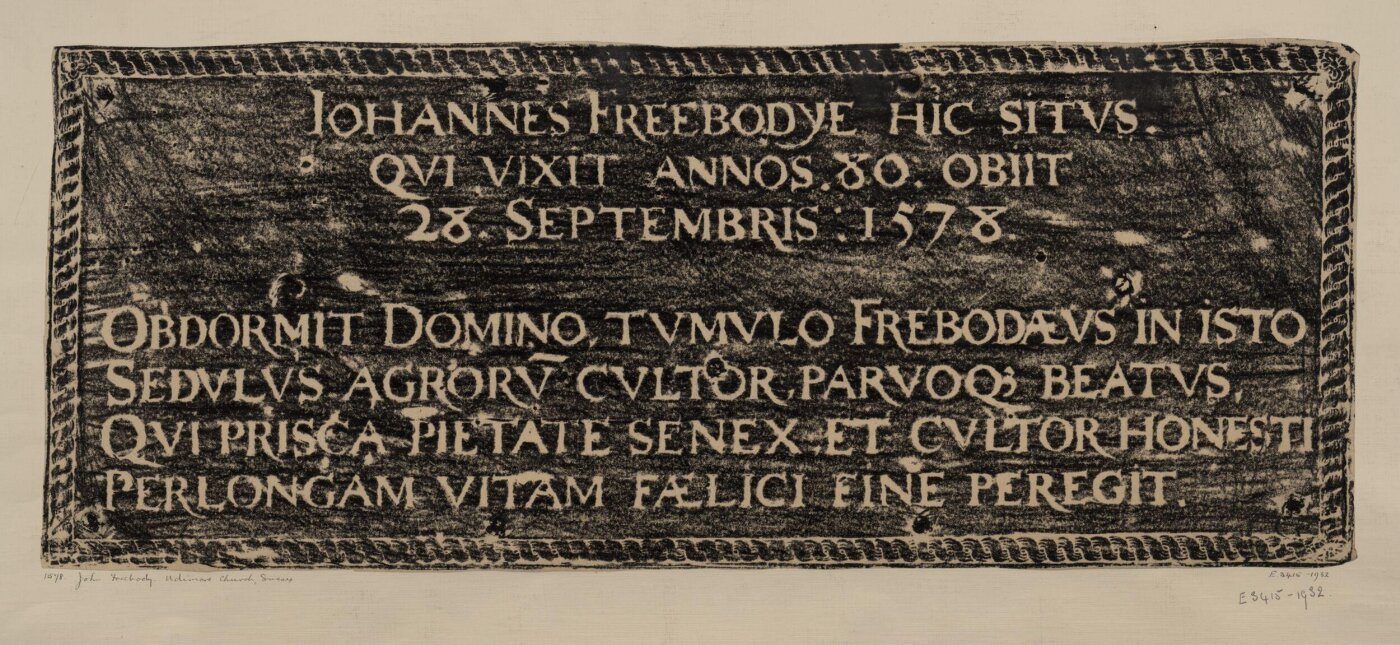 IOHANNES FREEBODYE HIC SITVS.
QVI VIXIT ANNOS. 80. OBIIT
28. SEPTEMBRIS : 1578.
OBDORMIT DOMINO, TVMVLO FREBODÆVS IN ISTO
SEDVLVS AGRORV̄ CVLTOR PARVOQꝫ BEATVS.
QVI PRISCA PIETATE SENEX ET CVLTOR HONESTI
PERLONGAM VITAM FÆLICI FINE PEREGIT.
1578. John Freebody. Udimore Church, Sussex
E.3415-1932
E 3415-1932.